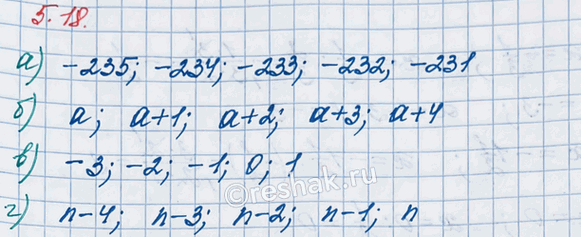 5.18.
а) -235; -234; -233; -232; -231
б) a; a+1; a+2; a+3; a+4
в) -3; -2; -1; 0; 1
г) n-4; n-3; n-2; n-1; n
©reshak.ru